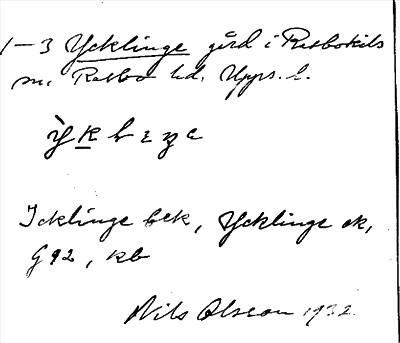 1-3 Ycklinge gård i Rasbokils
sn. Rasbo hd. Upps. l.
Icklinge bek, Ycklinge ek,
G 92, kb
Nils Olsson 1932